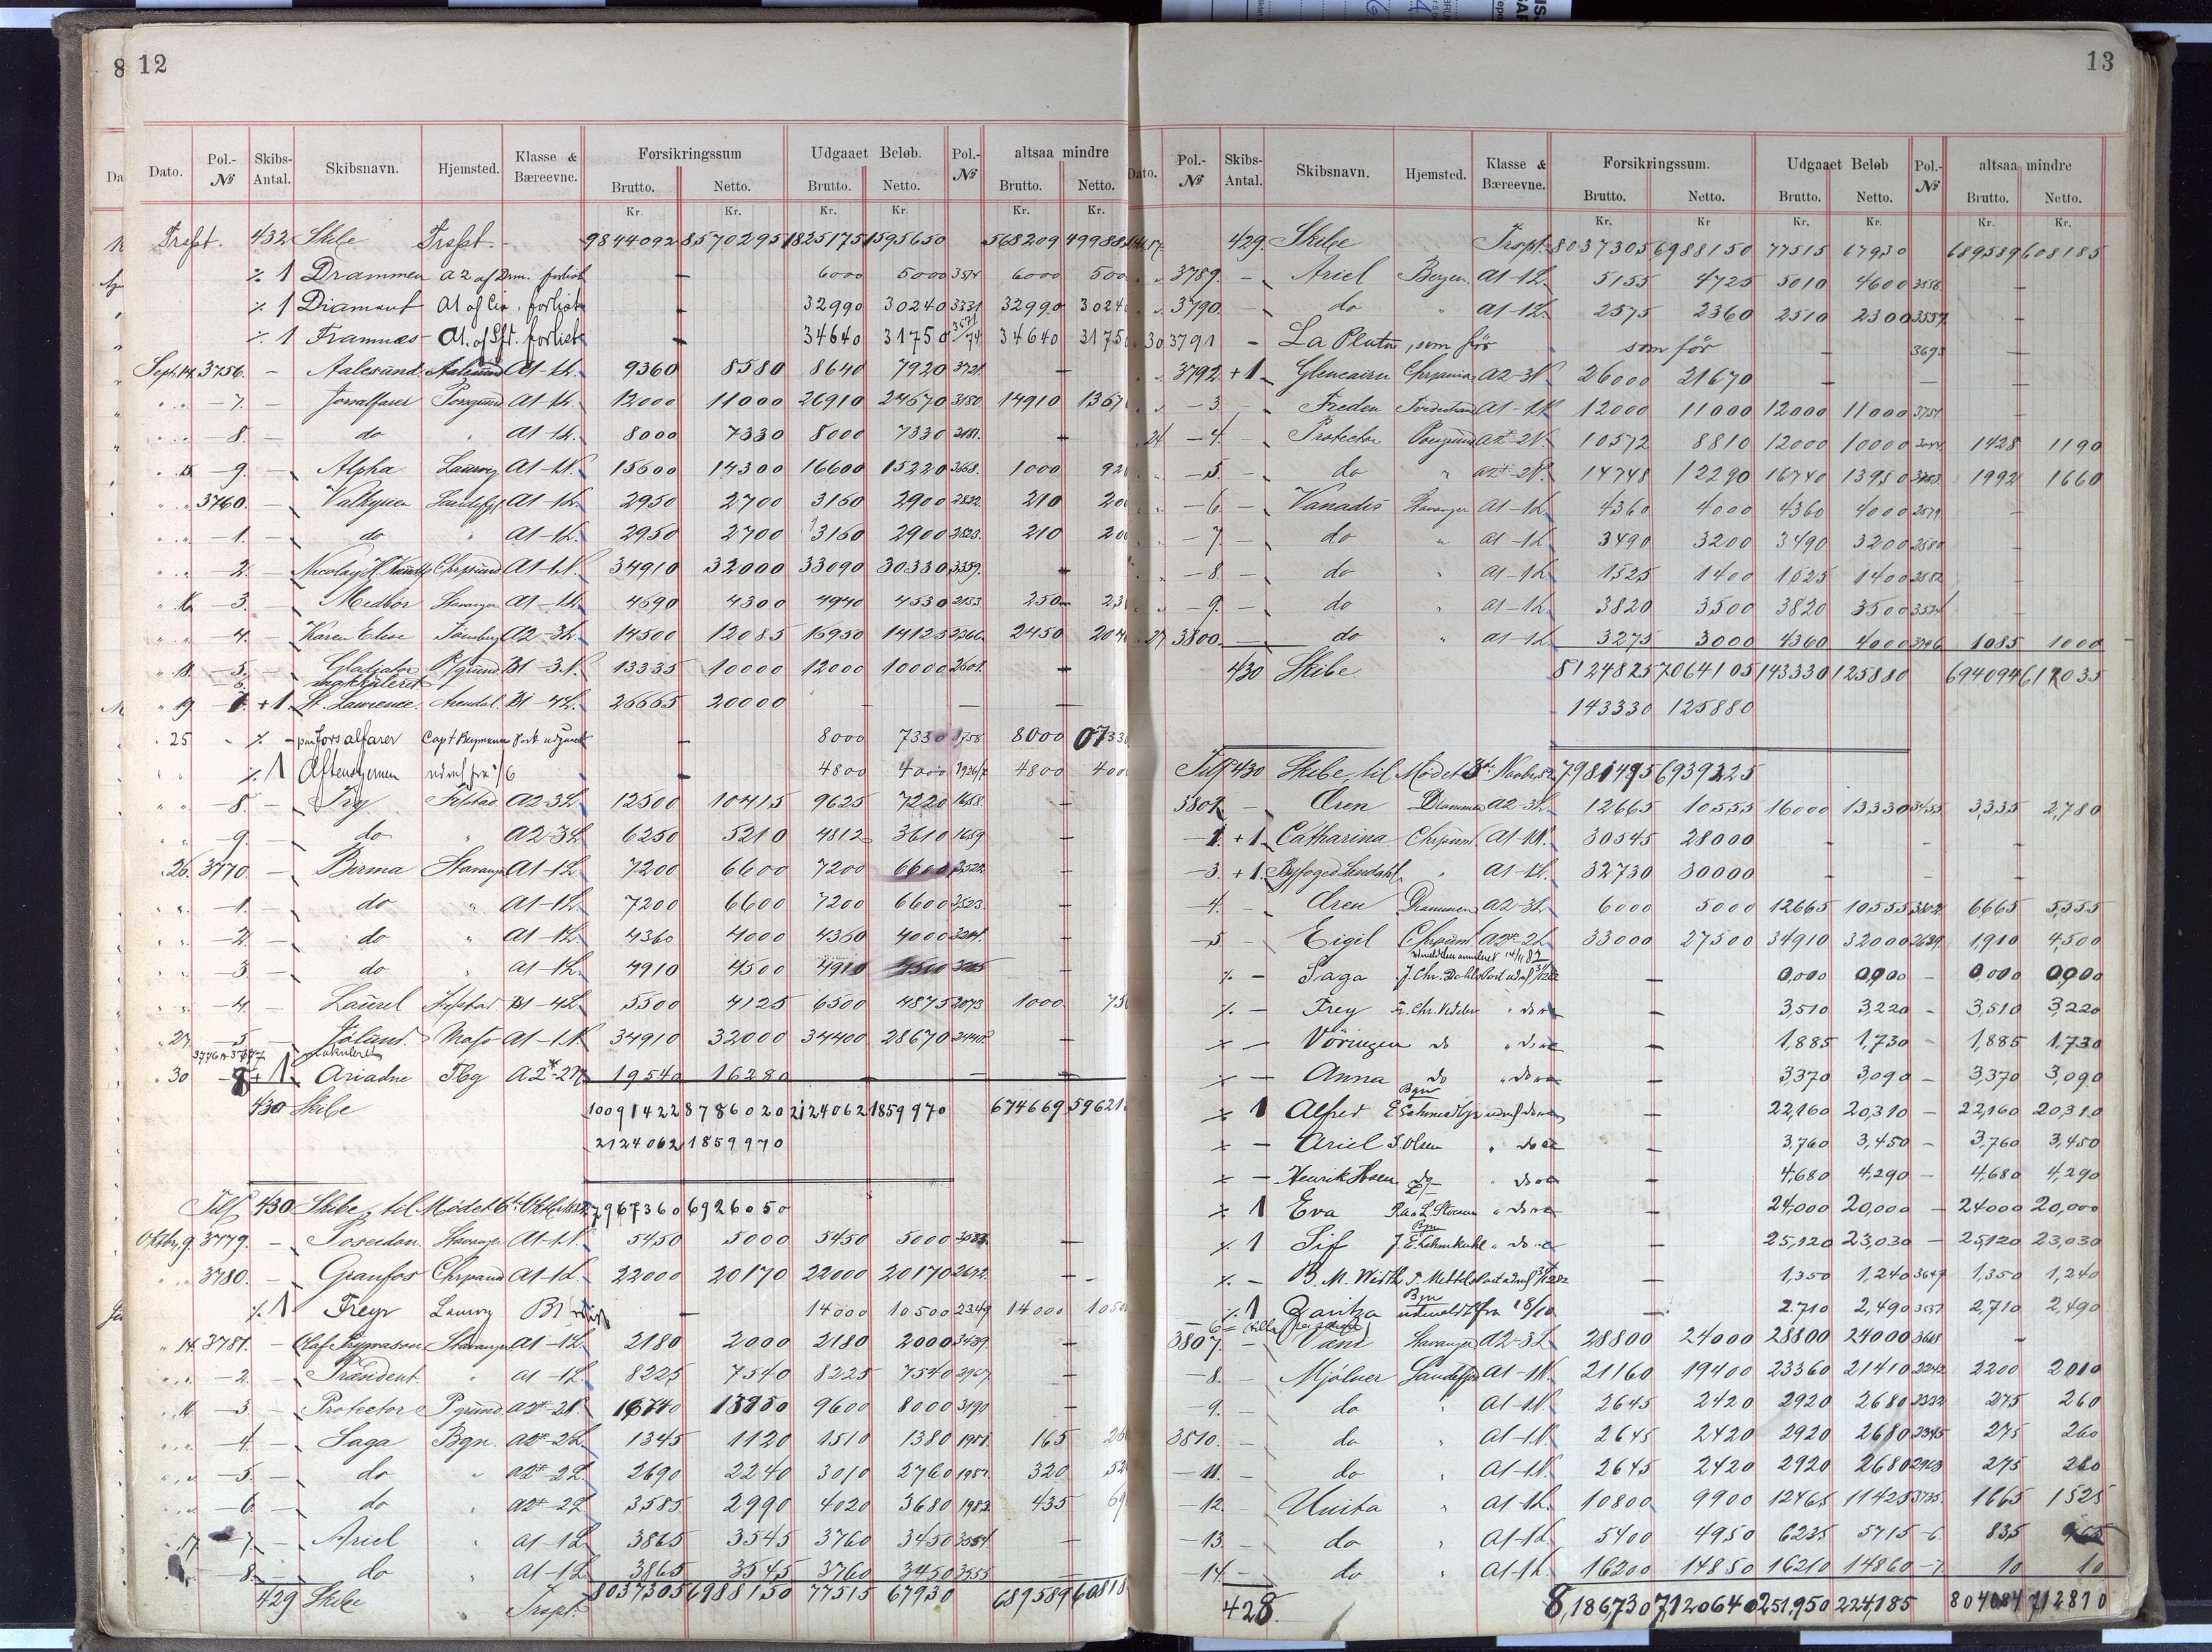 12
Dato. Pol.-№ Skibs-Antal. Skibsnavn. Hjemsted. Klasse & Bæreevne. Forsikringssum Udgaaet Beløb. Pol.-№ altsaa mindre
Brutto. Netto. Brutto. Netto. Brutto. Netto.
Kr. Kr. Kr. Kr. Kr. Kr.
Trspt. 432 Skibe Trspt. 9844092 8570295 1825175 1595650 568209 49988
⁒ 1 Drammen a2 af Drm. forlist — 6000 5000 3574 6000 500
⁒ 1 Diamant A1 forlist — 32990 30240 3331 32990 3024
⁒ 1 Framnæs A1. forlist — 34640 31750 34640 3175
Sept. 14. 3756. — Aalesund Aalesund A1-1L. 9360 8580 8640 7920 3721. —
" " —7. — Jorsalfarer Porsgrund A1-1L. 12000 11000 26910 24670 3180 14910 1367
" " —8. — do " A1-1L. 8000 7330 8000 7330 3181. —
" 15 —9. — Alpha Laurvig A1-1N. 15600 14300 16600 15220 3668. 1000 92
" " 3760. — Valkyrien Sandefj. A1-1L. 2950 2700 3160 2900 2822. 210 20
" " —1. — do " A1-1L. 2950 2700 3160 2900 2823. 210 20
" " —2. — Nicolay H. Knudtz Chrsund A1-1N. 34910 32000 33090 30330 3359. —
" 16 —3. — Medbør Stavanger A1-1L. 4690 4300 4940 4530 2153. 250 23
" " —4. — Karen Elise Tønsberg A2-3L. 14500 12085 16950 14125 2366. 2450 204
" 18. —5. — Gladiator P.grund B1-3N. 13335 10000 12000 10000 2601. —
—6. makuleret
" 19 —7. +1 St. Lawrence. Arendal. B1-4L. 26665 20000 — — —
" 25 - ⁒ — Jorsalfarer Capt Part udgaaet — 8000 7330 3758 8000 0733
" " ⁒ 1 Aftenstjernen udm. fra — 4800 4000 1926/7 4800 400
" " —8. — Try A2-3L. 12500 10415 9625 7220 1658. —
" " —9. — do " A2-3L 6250 5210 4812 3610 1659 —
" 26. 3770. — Berma Stavanger A1-1L. 7200 6600 7200 6600 2522. —
" " —1. — do " A1-1L. 7200 6600 7200 6600 2523. —
" " —2. — do " A1-1L. 4360 4000 4360 4000 3204. —
" " —3 — do " A1-1L. 4910 4500 4910 4500 —
" " —4. — Laurel B1-4L. 5500 4125 6500 4875 2073 1000 75
" 27 —5 — Jøland. Moss A1-1N. 34910 32000 34400 28670 2440.
3776 & 3777 makuleret
" 30 —8 +1 Ariadne Tbg A2*-2N 19540 16280 — — —
430 Skibe 10091422 8786020 2124062 1859970 674669 59621
2124062 1859970
Tils. 430 Skibe, til Mødet 6te Oktbr 1882 7967360 6926050
Oktbr. 9. 3779. — Poseidon. Stavanger A1-1N. 5450 5000 5450 5000 3083. —
" " 3780. — Granfos Chrsand A1-1L. 22000 20170 22000 20170 2672. —
⁒ 1 Freyr Laurvig B1 forlist — 14000 10500 2349 14000 1050
" 14. 3781. — Olaf Trygvason Stavanger A1-1L. 2180 2000 2180 2000 3439. —
" " —2. — Præsident. " a1-1L. 8225 7540 8225 7540 2967 —
" 16 —3. — Protector P.grund A2*-2N 16740 13950 9600 8000 3190 —
" " —4. — Saga Bgn. A2*-2L 1345 1120 1510 1380 1981. 165 26
" " —5. — do " A2*-2L 2690 2240 3010 2760 1982. 320 52
" " —6. — do " A2*-2L 3585 2990 4020 3680 1983. 435 69
" 17. —7. — Ariel " A1-1L 3865 3545 3760 3450 3554 —
—8. — do " A1-1L 3865 3545 3760 3450 3555 —
429 Skibe Trspt. 8037305 6988150 77515 67930 689589 60818
13
Dato. Pol.-№ Skibs-Antal. Skibsnavn. Hjemsted. Klasse & Bæreevne. Forsikringssum. Udgaaet Beløb Pol.-№ altsaa mindre
Brutto. Netto. Brutto. Netto. Brutto. Netto.
Kr. Kr Kr. Kr. Kr. Kr.
429. Skibe Trspt. 8037305 6988150 77515 67930 689589 608185
" " 3789. — Ariel Bergen A1-1L. 5155 4725 5010 4600 3556. —
" " 3790. — do " A1-1L. 2575 2360 2510 2300 3557. —
30 3791 — La Plata, som før som før — 3695 —
" " 3792. +1 Glencairn Chrsania A2-3N. 26000 21670 — — —
" " —3. — Freden Tvedestrand A1-1N 12000 11000 12000 11000 3751. —
24 —4. — Protector Porsgrund A2*-2N. 10572 8810 12000 10000 1428 1190
—5. — do " A2*-2N. 14748 12290 16740 13950 1992 1660
" —6. — Vanadis Stavanger A1-1L 4360 4000 4360 4000 2579. —
" —7. — do " A1-1L 3490 3200 3490 3200 2580. —
" —8. — do " A1-1L 1525 1400 1525 1400 2582 —
" " —9. — do " A1-1L. 3820 3500 3820 3500 —
27. 3800. — do " A1-1L 3275 3000 4360 4000 3796 1085 1000
430 Skibe. 8124825 7064105 143330 125880 694094 612035
143330 125880
Tils. 430 Skibe, til Mødet 3die Novbr. 82. 7981495 6939225
3801. — Ören Drammen A2-3L. 12665 10555 16000 13330 3455 3335 2,780
—2 +1 Catharina Chrsund A1-1N. 30545 28000 - - -
—3. +1. Byfoged " A1-1L. 32730 30000 - - -
—4. — Ören Drammen A2-3L 6000 5000 12665 10555 3802 6665 5,555
—5 — Eigil Chrsund. A2*-2L 33000 27500 34910 32000 2639. 1,910 4,500
udmeldelsen annulleret 14/11 82
⁒ — Saga J. Chr. Dahls Part udm. — 0,000 0,900 - 0,000 0,900
⁒ — Frey Fr. Chr. " do — 3,510 3,220 - 3,510 3,220
⁒ — Vöringen do " do — 1,885 1,730 - 1,885 1,730
⁒ — Anna do " do — 3,370 3,090 - 3,370 3,090
⁒ 1 Alfred Bgn — 22,160 20,310 - 22,160 20,310
⁒ — Ariel Olsen " do — 3,760 3,450 - 3,760 3,450
⁒ — Henrik Ibsen do " do — 4,680 4,290 - 4,680 4,290
⁒ 1 Eva " do — 24,000 20,000 - 24000 20,000
⁒ 1 Sif Bgn " do — 25,120 23,030 - 25,120 23,030
⁒ — B. M. Width Part udm. — 1,350 1,240 3647 1,350 1,240
⁒ 1 Zaritza Bgn udmeldt fra 18/10 — 2.710 2,490 2,710 2,490
3807. — Vand Stavanger A2-3L 28800 24000 28800 24000 3668 —
—8. — Mjølner Sandefjord A1-1N. 21160 19400 23360 21410 2242 2200 2010
—9. — do " A1-1N. 2645 2420 2920 2680 2332 275 260
3810. — do " A1-1N. 2645 2420 2920 2680 2345 275 260
—11. — do " A1-1N. 2645 2420 2920 2680 2928 275 260
—12. — Unita " A1-1L. 10800 9900 12465 11425 3735. 1665 1525
—13. — do " A1-1L. 5400 4950 6235 5715 -6. 835
—14. — do " A1-1L. 16200 14850 16210 14860 -7. 10 10
428. 8,186,730 7,120640 251,950 224,185 804084 712810